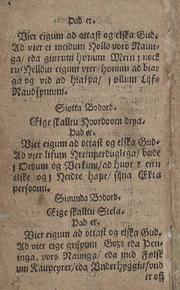 Þad er.
Vier eigum ad ottast og elska Gud.
Ad vier ei meidum Holld vors Naun-
ga / eda giørum honum Mein j nock
ru / Helldur eigum vier / honum ad biar
ga og vid ad hialpa / j ollum Lijfs
Naudsynium.
Siøtta Bodord.
Eige skalltu Hoordoom dryia.
Þad er.
Vier eigum ad ottast og elska Gud-
Ad vier lifum Hreinferdugliga / bæde
j Ordum og Verkum / ad huør ein
elske og j Heidre hafe / sijna Ekta
persoonu.
Siøunda Bodord.
Eige skalltu Stela.
Þad er.
Vier eigum ad ottast og elska Gud.
Ad vier eige gripum Gotz eda Pen-
inga, vors Naunga / eda med Fölsk
um Kaupeyrer / eda Vnderhyggiu / ond
er oss